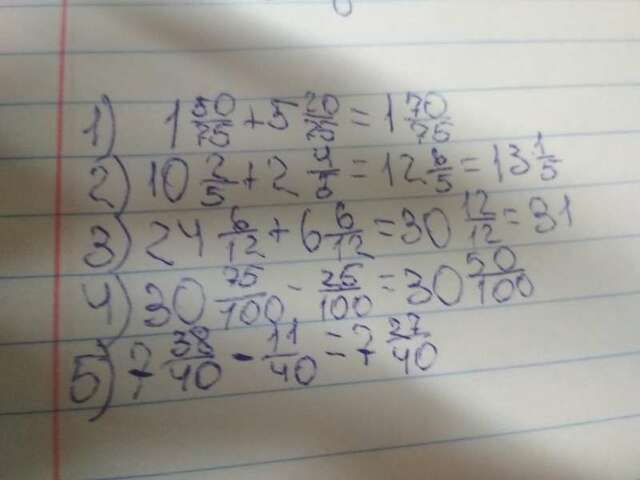 1) 1 50/75 + 5 20/75 = 1 70/75
2) 10 2/5 + 2 /5 = 12 6/5 = 13 1/5
3) 24 6/12 + 6 6/12 = 30 12/12 = 31
4) 30 75/100 - 25/100 = 30 50/100
5) 7 38/40 - 11/40 = 7 27/40